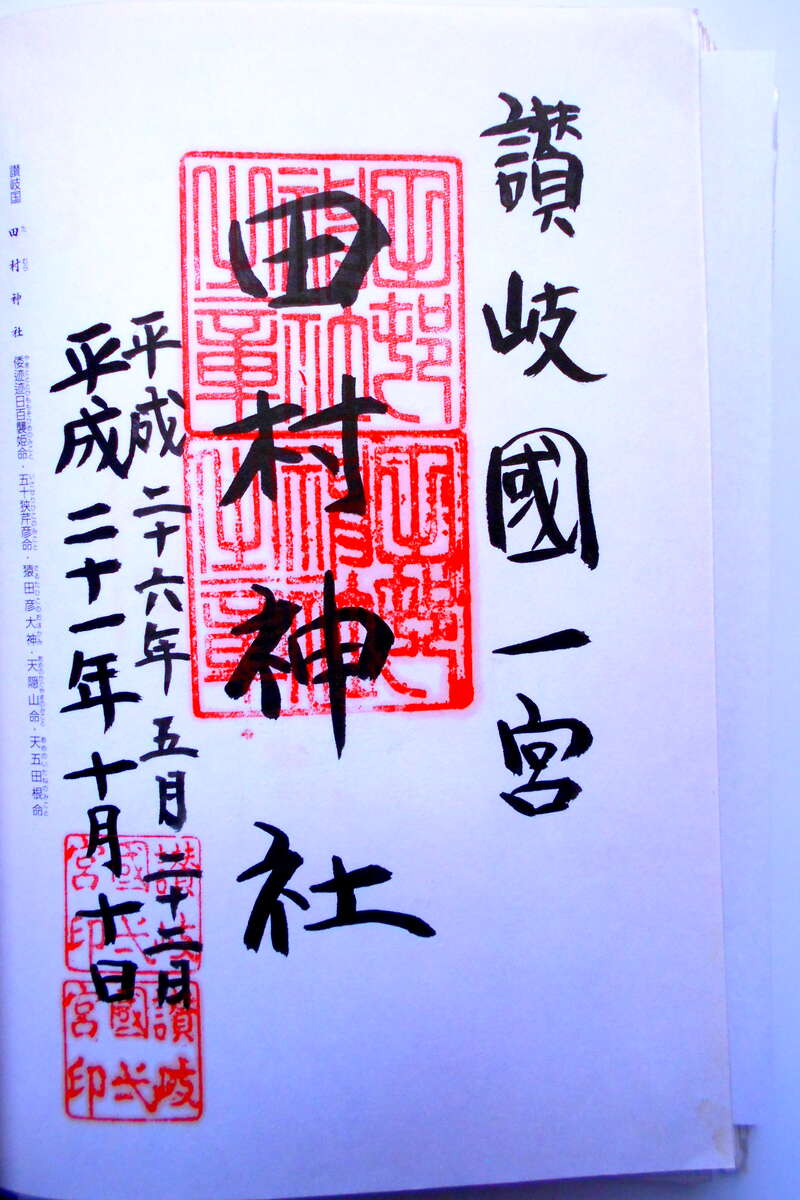 讃岐國一宮
田村神社
平成二十六年五月二十二日
平成二十一年十月十日
讃岐國弌宮印
讃岐國弌宮印
讃岐国 田村神社 倭迹迹日百襲姫命・五十狭芹彦命・猿田彦大神・天隠山命・天五田根命